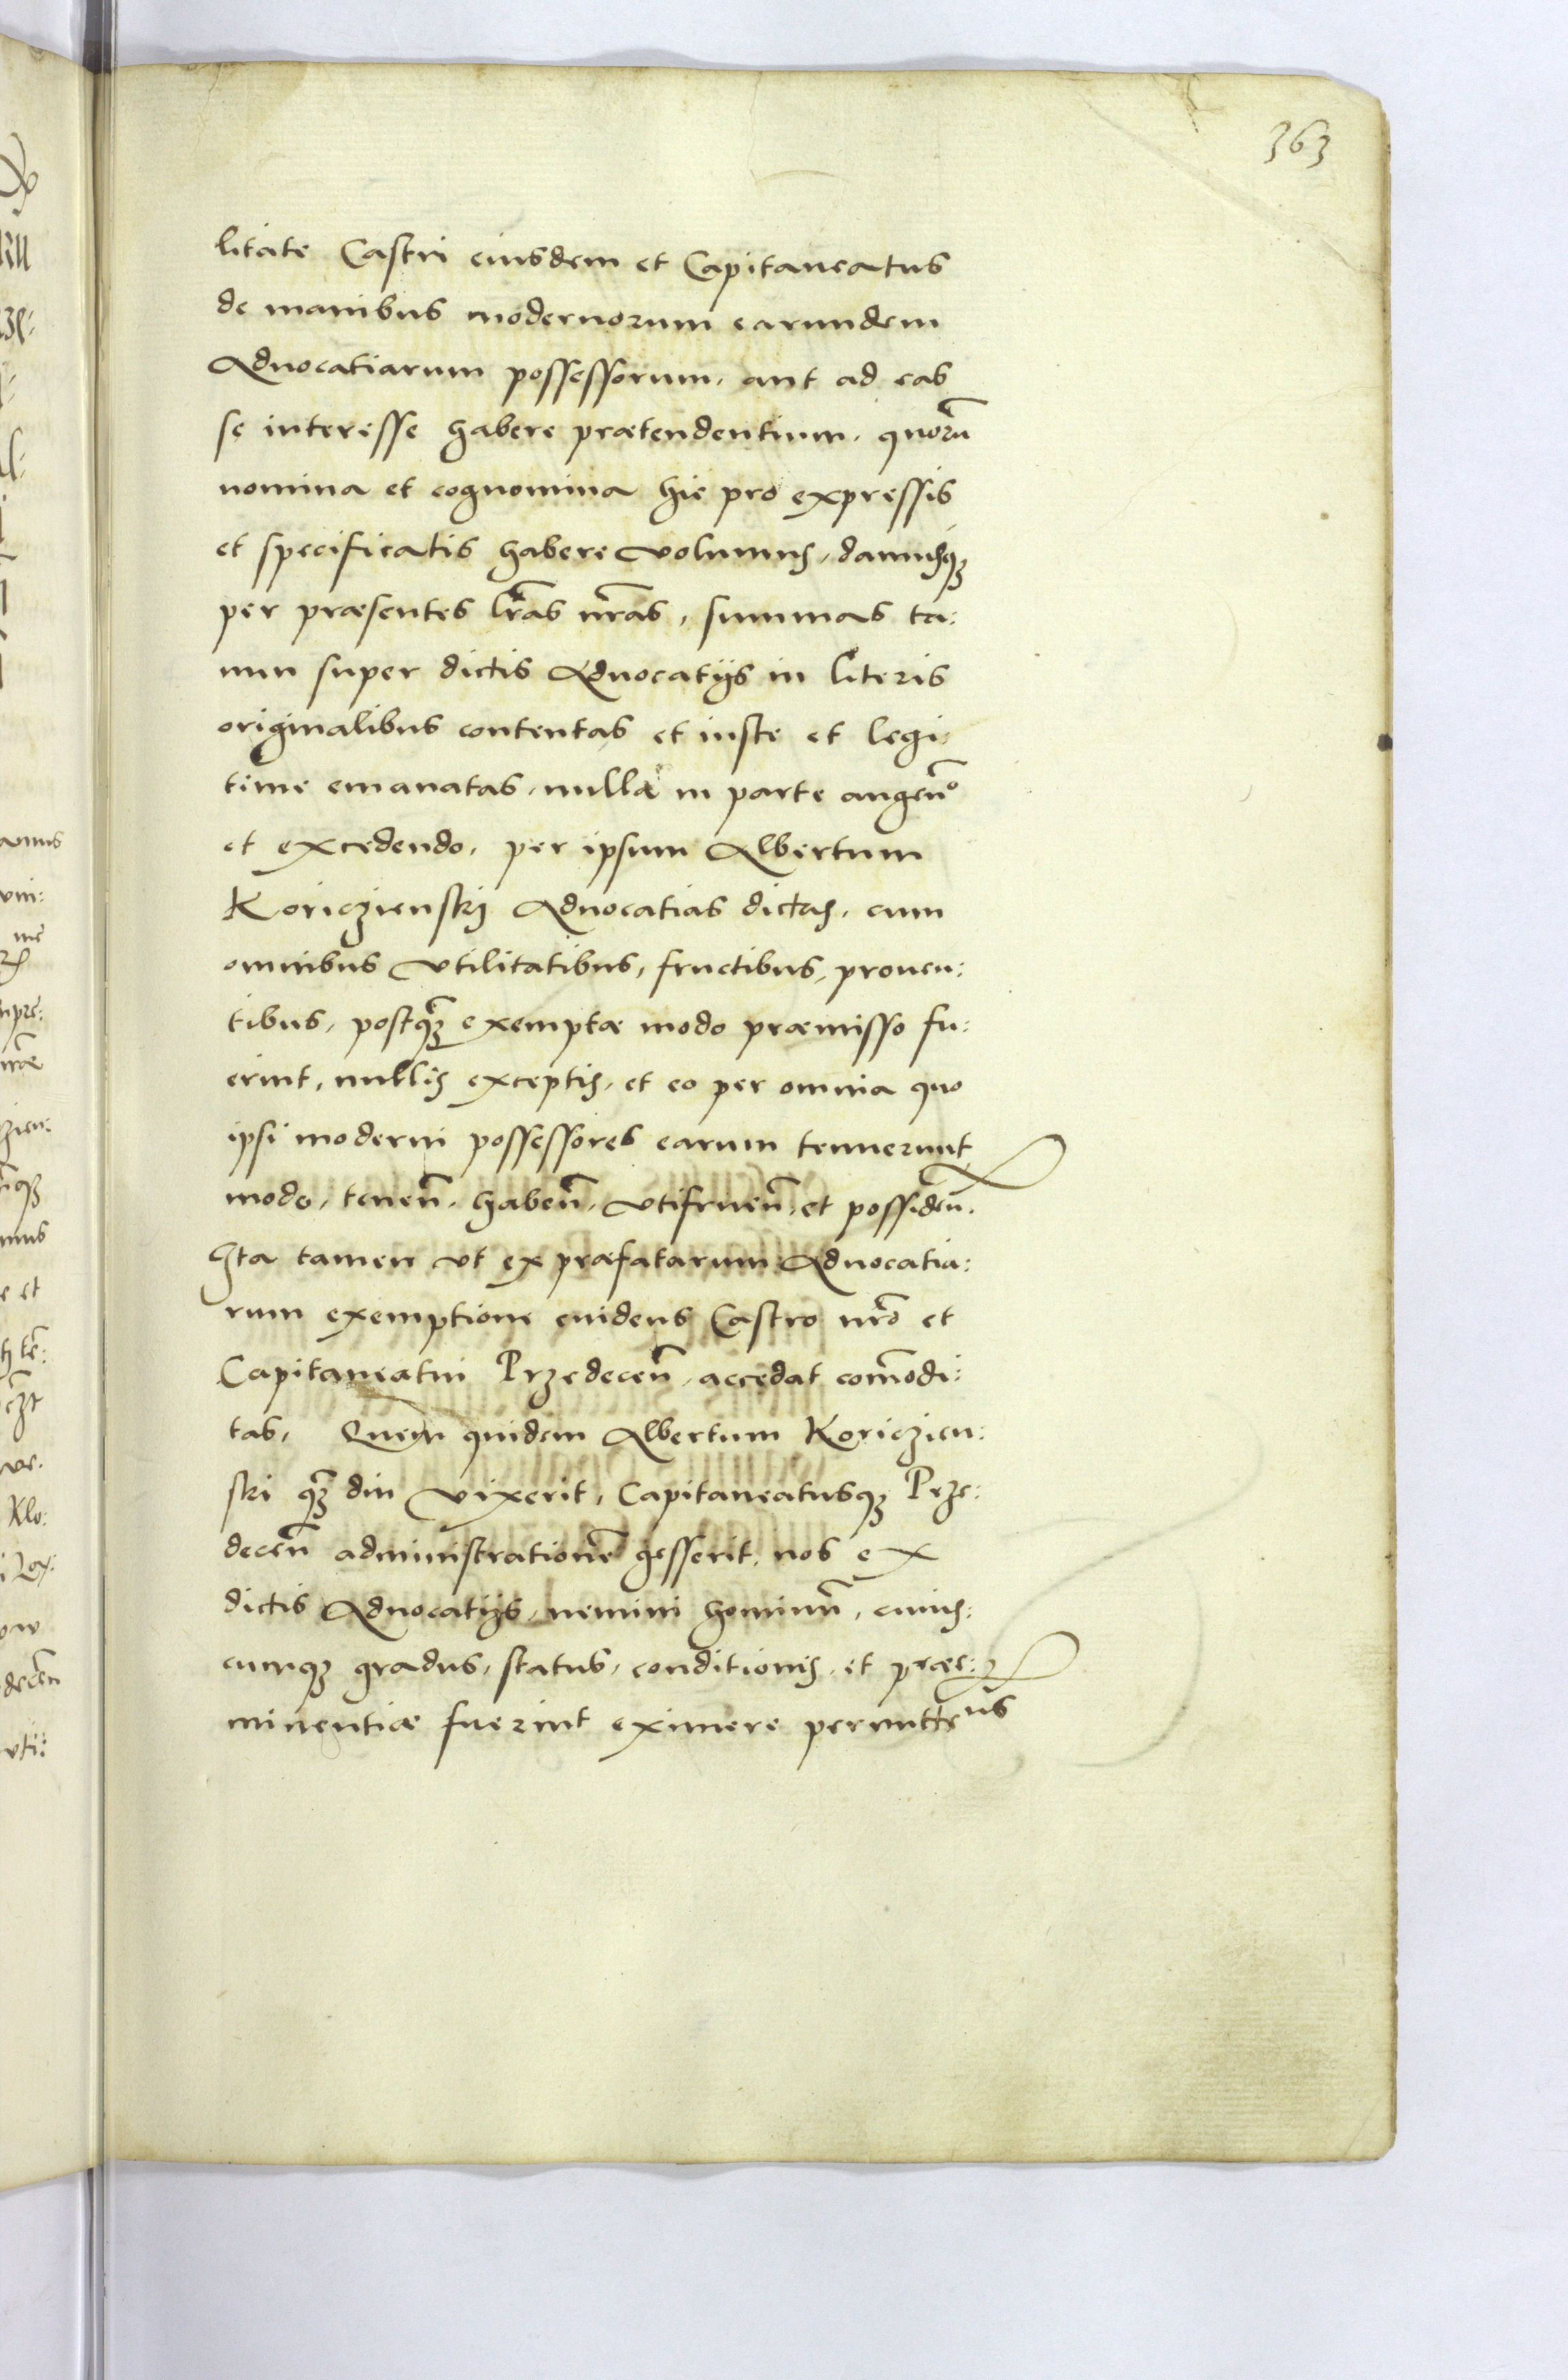 363
litate Castri eiusdem et Capitaneatus
de manibus modernorum earundem
Aduocatiarum possessorum, aut ad eas
se interesse habere prætendentium, quorũ
nomina et cognomina hic pro expressis
et specificatis habere volumus, damusq3
per præsentes lr̃as nr̃as, summas ta:
men super dictis Aduocatijs in literis
originalibus contentas et iuste et legi:
time emanatas, nulla in parte augeñ°
et excedendo, per ipsum Albertum
Koriczienskj Aduocatias dictas, cum
omnibus vtilitatibus, fructibus, prouen:
tibus, postq̃3 exemptæ modo præmisso fu:
erint, nullis exceptis, et eo per omnia quo
ipsi moderni possessores earum tenuerunt
modo, teneñ. habeñ. vtifrueñ. et possideñ.
Ita tamen vt ex præfatarum Aduocatia:
rum exemptione euidens Castro nr̃o et
Capitaneatui Przedeceñ. accedat com̃odi:
tas, Quem quidem Albertum Koriczien:
ski q̃3 diu vixerit, Capitaneatusq3 Prze:
deceñ administrationẽ gesserit, nos ex
dictis Aduocatijs, nemini hominũ, cuius:
cumq3 gradus, status, conditionis, et præe:
minentiæ fuerint eximere permittemus